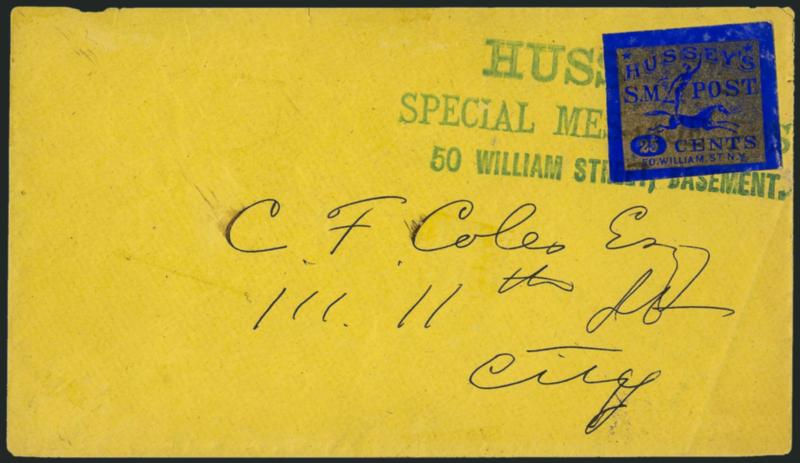 HUSS
SPECIAL MES
50 WILLIAM STREET, BASEMENT.
HUSSEY'S
S.M. POST
25 CENTS
50. WILLIAM. ST. N.Y.
C. F. Coles Esq
111. 11th St
City